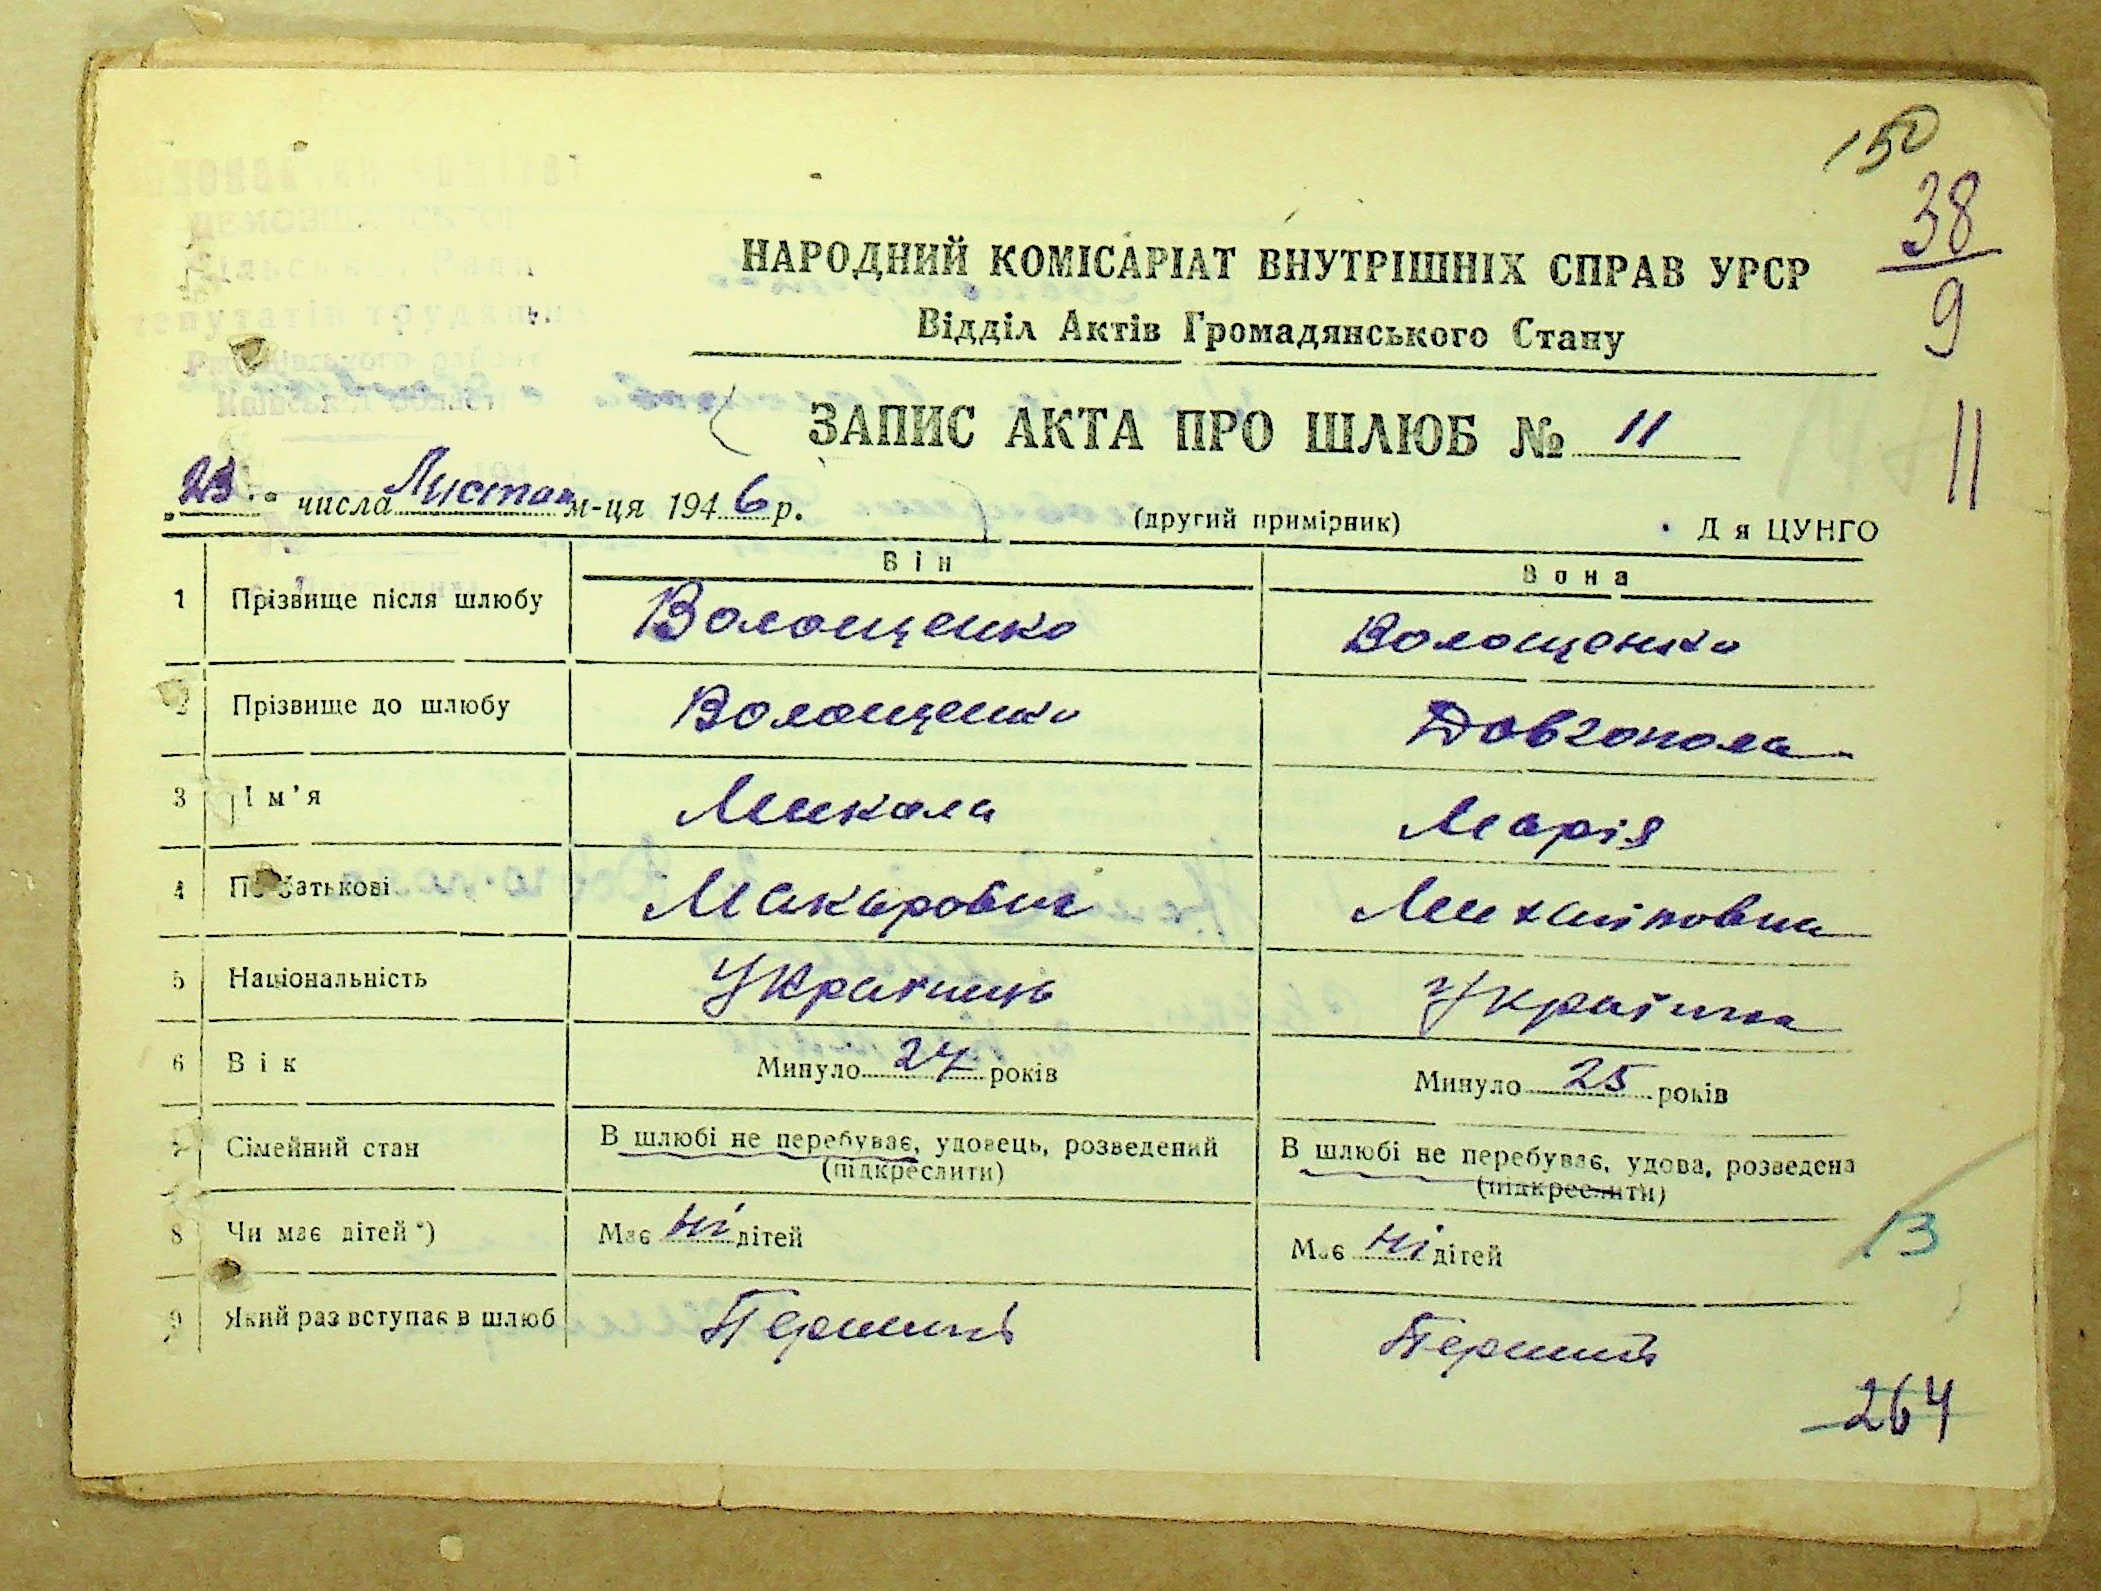 150
38
9
НАРОДНИЙ КОМІСАРІАТ ВНУТРІШНІХ СПРАВ УРСР
Відділ Актів Громадянського Стану
ЗАПИС АКТА ПРО ШЛЮБ № 11
11
„23“ числа Листопа м-ця 1946 р.
(другий примірник)
Д я ЦУНГО
Він
Вона
1 Прізвище після шлюбу Волощенко Волощенко
2 Прізвище до шлюбу Волощенко Довгопола
3 Ім'я Микола Марія
4 По батькові Макарович Михайловна
5 Національність Українець Українка
6 Вік Минуло 27 років Минуло 25 років
7 Сімейний стан В шлюбі не перебуває, удовець, розведений В шлюбі не перебуває, удова, розведена
(підкреслити) (підкреслити)
8 Чи має дітей*) Має ні дітей Має ні дітей
13
9 Який раз вступає в шлюб Перший Перший
264